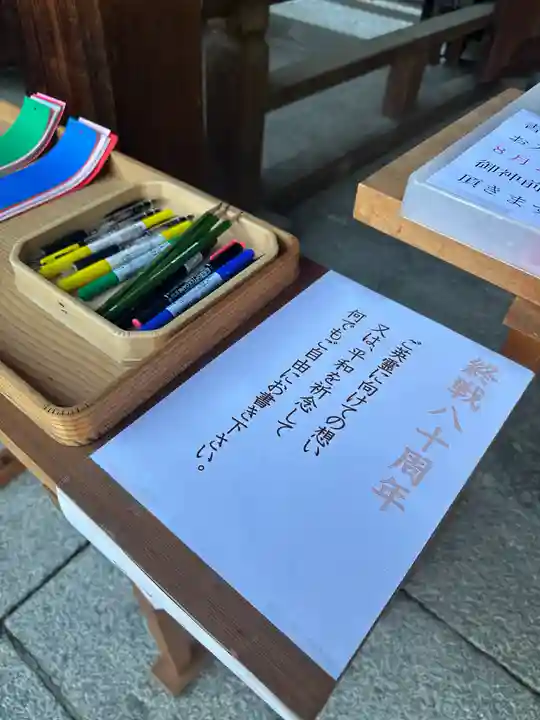 終戦八十周年
ご英霊に向けての想い
又は、平和を祈念して
何でもご自由にお書き下さい。
8月
御神前
頂きます